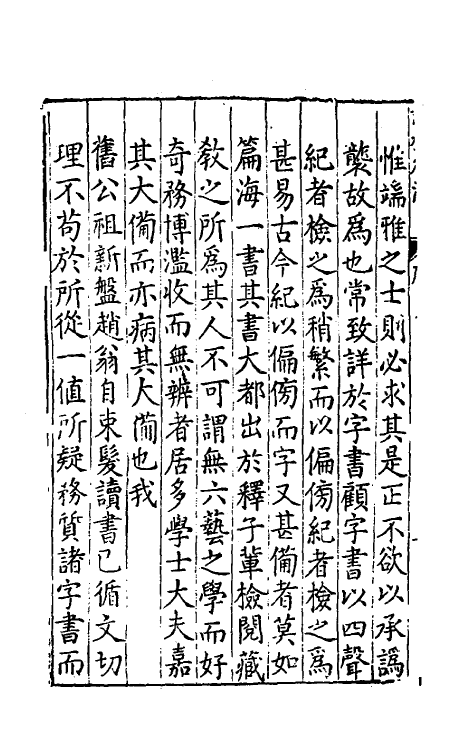 惟端雅之士則必求其是正不欲以承譌
襲故爲也常致詳於字書顧字書以四聲
紀者檢之爲稍繁而以偏傍紀者檢之爲
甚易古今紀以偏傍而字又甚備者莫如
篇海一書其書大都出於釋子軰檢閱藏
敎之所爲其人不可謂無六藝之學而好
奇務博濫收而無辨者居多學士大夫嘉
其大備而亦病其大備也我
舊公祖新盤趙翁自束髮讀書已循文切
理不苟於所從一值所疑務質諸字書而